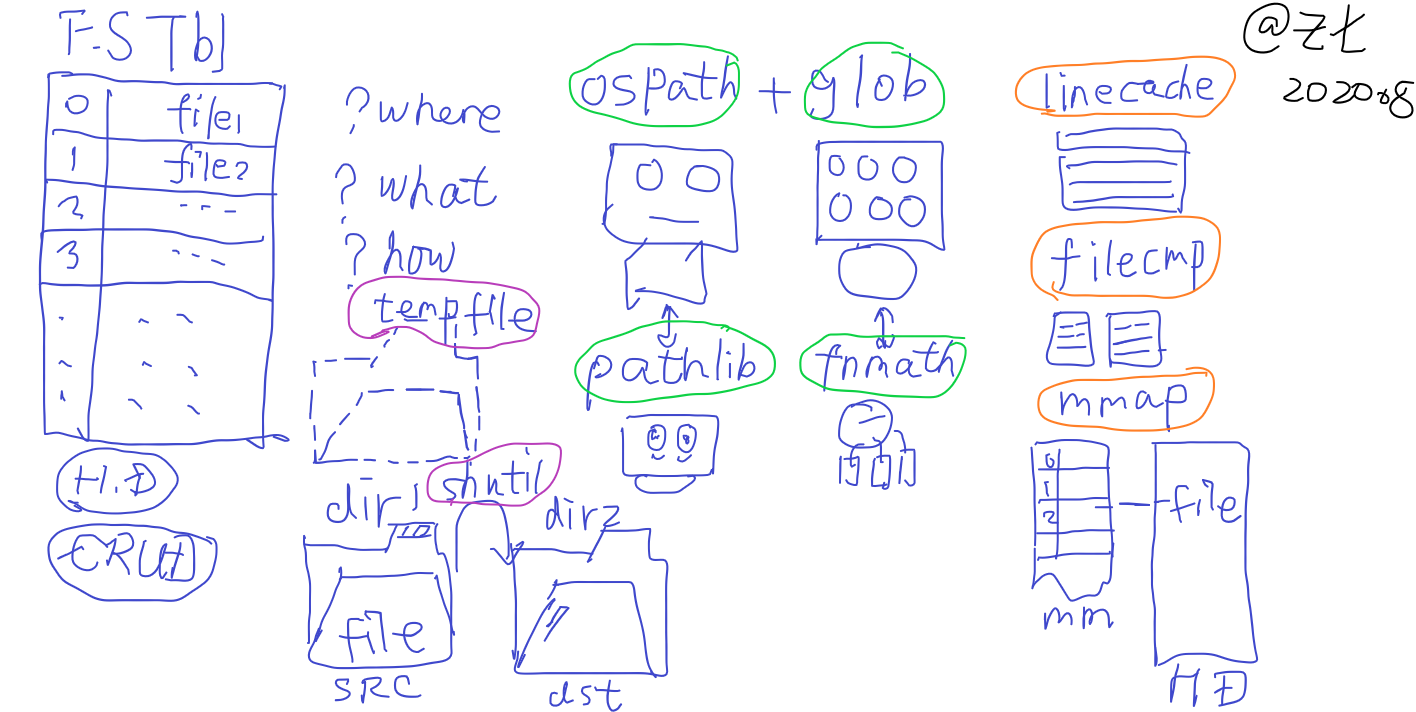 F-S Tbl
0 file1
1 file2
2 ---
3 ---
H.D
CRUD
? where
? what
? how
tempfile
shutil
dir1
dir2
file
SRC
dst
ospath + glob
pathlib
fnmath
linecache
filecmp
mmap
0
1
2
file
mm
HD
2020.8